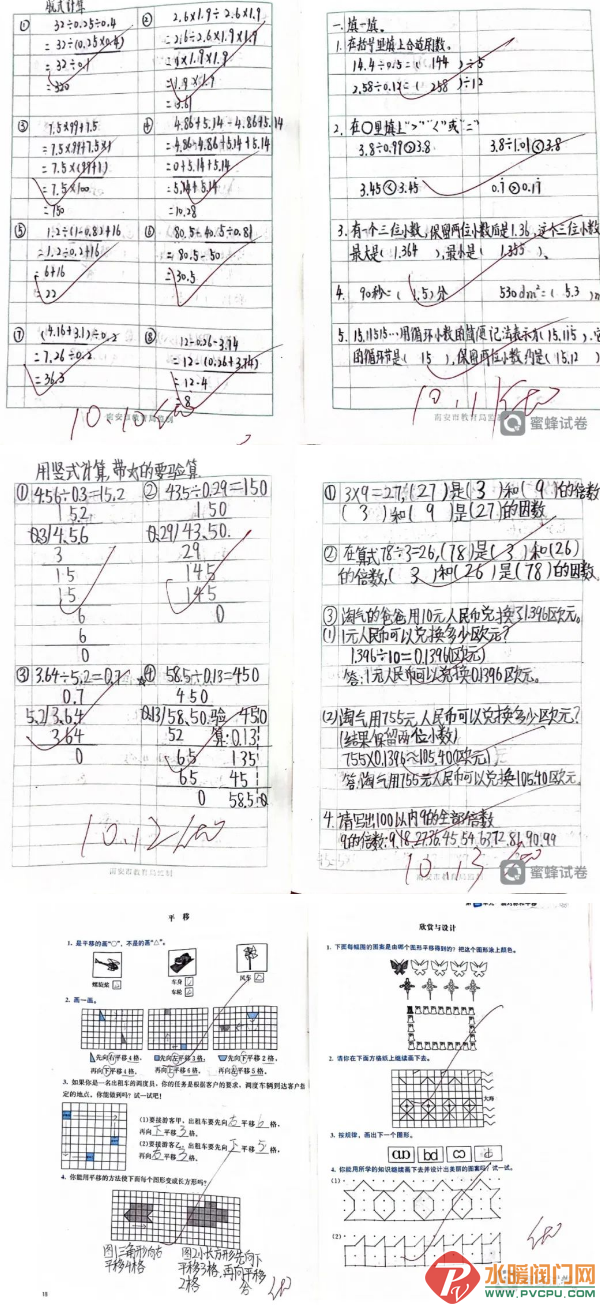 脱式计算
① 32÷0.25÷0.4
=32÷(0.25×0.4)
=32÷0.1
=320
② 2.6×1.9÷2.6×1.9
=2.6÷2.6×1.9×1.9
=1×1.9×1.9
=1.9×1.9
=3.61
③ 7.5×99+7.5
=7.5×99+7.5×1
=7.5×(99+1)
=7.5×100
=750
④ 4.86+5.14-4.86+5.14
=4.86-4.86+5.14+5.14
=0+5.14+5.14
=5.14+5.14
=10.28
⑤ 1.2÷(1-0.8)+16
=1.2÷0.2+16
=6+16
=22
⑥ 80.5-40.5÷0.81
=80.5-50
=30.5
⑦ (4.16+3.1)÷0.2
=7.26÷0.2
=36.3
⑧ 12-0.26-3.74
=12-(0.26+3.74)
=12-4
=8
10.10
南安市教育局监制
一、填一填。
1. 在括号里填上合适的数。
14.4÷0.5=( 144 )÷5
2.58÷0.12=( 258 )÷12
2. 在○里填上">""<"或"="
3.8÷0.99>3.8 3.8÷1.01<3.8
3.45<3.45 0.7>0.17
3. 有一个三位小数,保留两位小数后是1.36,这个三位小数
最大是( 1.364 ),最小是( 1.355 )、
4. 90秒=( 1.5)分 530dm²=( 5.3 )m
5. 15.11515…用循环小数的简便记法表示为(15.115),它
的循环节是( 15 ),保留两位小数约是(15.12 )
10.11
南安市教育局监制
蜜蜂试卷
用竖式计算,带☆的要验算
① 4.56÷0.3=15.2 ② 43.5÷0.29=150
15.2 150
0.3/4.56 0.29/43.50
3 29
1.5 145
1.5 145
6 0
6
0
③ 3.64÷5.2=0.7 ☆④ 58.5÷0.13=450
0.7 450
5.2/3.64 0.13/58.50 验 450
3.64 52 算:0.13
0 65 135
65 45
0 58.50
10.12
南安市教育局监制
① 3×9=27,(27)是( 3 )和( 9 )的倍数
( 3 )和( 9 )是(27)的因数
② 在算式78÷3=26,(78)是( 3 )和(26)
的倍数,( 3 )和(26)是(78)的因数
③ 淘气的爸爸用10元人民币兑换了1.396欧元。
(1) 1元人民币可以兑换多少欧元?
1.396÷10=0.1396(欧元)
答:1元人民币可以兑换0.1396欧元。
(2) 淘气用755元人民币可以兑换多少欧元?
(结果保留两位小数)
755×0.1396≈105.40(欧元)
答:淘气用755元人民币可以兑换105.40欧元。
4. 请写出100以内9的全部倍数
9的倍数:9,18,27,36,45,54,63,72,81,90,99
10.13
蜜蜂试卷
平 移
1. 是平移的画"○",不是的画"△"。
螺旋桨 车身 风车
车轮
2. 画一画。
先向右平移4格, 先向左平移3格, 先向下平移2格,
再向下平移4格。 再向上平移6格。 再向左平移5格。
3. 如果你是一名出租车的调度员,你的任务是根据客户的要求,调度车辆到达客户指
定的地点。你能做到吗?试一试吧!
(1)要接游客甲,出租车要先向右平移6格,
再向下平移3格。
(2)要接游客乙,出租车要先向下平移5格,
再向右平移3格。
4. 你能用平移的方法使下面每个图形变成长方形吗?
图1三角形向右
平移4格
图2小长方形先向下
平移3格,再向平移
2格
18
欣赏与设计
1. 下面每幅图的图案是由哪个图形平移得到的?把这个图形涂上颜色。
2. 请你在下面方格纸上继续画下去。
3. 按规律,画出下一个图形。
4. 你能用所学的知识继续画下去并设计出美丽的图案吗?试一试。
(1)
(2)
水暖阀门网
WWW.PVCPU.COM